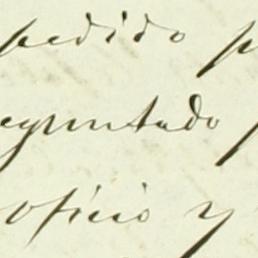 pedido p
eguntado p
oficio y